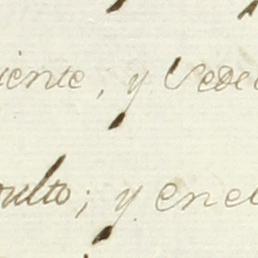 iente, y se de
ulto; y en el